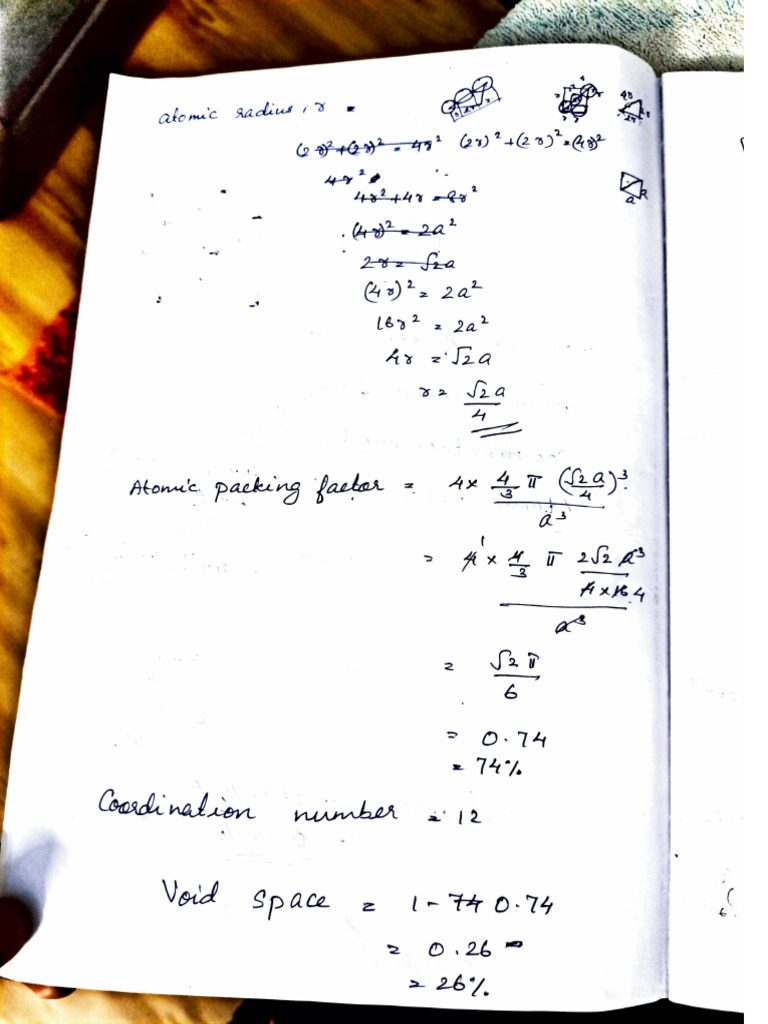 atomic radius, r =
(2r)² + (2r)² = 4r² (2r)² + (2r)² = (4r)²
4r²
4r² + 4r = 8r²
(4r)² = 2a²
2r = √2a
(4r)² = 2a²
16r² = 2a²
4r = √2a
r = √2a/4
Atomic packing factor = 4 × 4/3 π (√2a/4)³ / a³
= 4 × 4/3 π 2√2 a³ / 4×16 4 / a³
= √2π/6
= 0.74
= 74%
Coordination number = 12
Void space = 1 - 74 0.74
= 0.26
= 26%